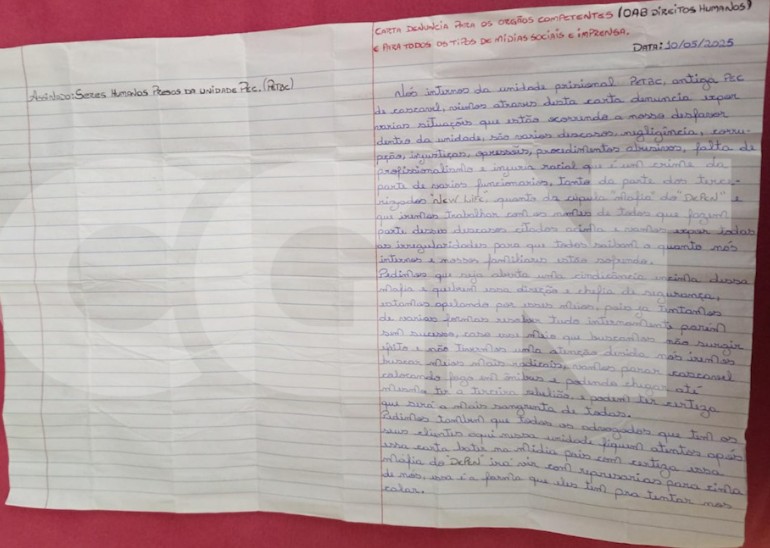 CARTA DENUNCIA PARA OS ORGÃOS COMPETENTES (OAB DIREITOS HUMANOS)
E PARA TODOS OS TIPOS DE MÍDIAS SOCIAIS E IMPRENSA.
DATA: 10/05/2025
Assinado: SERES HUMANOS PRESOS DA UNIDADE PEC. (PETBC)
Nós internos da unidade prisional PETBC, antiga PEC
de cascavel, viemos atraves desta carta denuncia expor
varias situações que estão ocorrendo a nosso desfavor
dentro da unidade, são varios descasos, negligência, corru-
pção, injustiças, opressões, procedimentos abusivos, falta de
profissionalismo e injuria racial que é um crime da
parte de varios funcionarios, tanto da parte dos terce-
rizados "New Life" quanto da cúpula "mafia" do "DePeN" e
que iremos trabalhar com os nomes de todos que fazem
parte desses descasos citados acima e vamos expor todas
as irregularidades para que todos saibam o quanto nós
internos e nossos familiares estão sofrendo.
Pedimos que seja aberta uma cindicância encima dessa
mafia e quebrem essa direção e chefia de segurança,
estamos apelando por esses meios, pois ja tentamos
de varias formas resolver tudo internamente porém
sem sucesso, caso esse meio que buscamos não surgir
efeito e não tivermos uma atenção devida nós iremos
buscar meios mais radicais, vamos parar cascavel
colocando fogo em ônibus e podendo chegar até
mesmo ter a terceira rebelião, e podem ter certeza
que será a mais sangrenta de todas.
Pedimos tambem que todos os advogados que tem os
seus clientes aqui nessa unidade fiquem atentos após
essa carta bater na mídia pois com certeza essa
mafia do "DePeN" irá vir com represarias para cima
de nós, essa é a forma que eles tem pra tentar nos
calar.
CGN